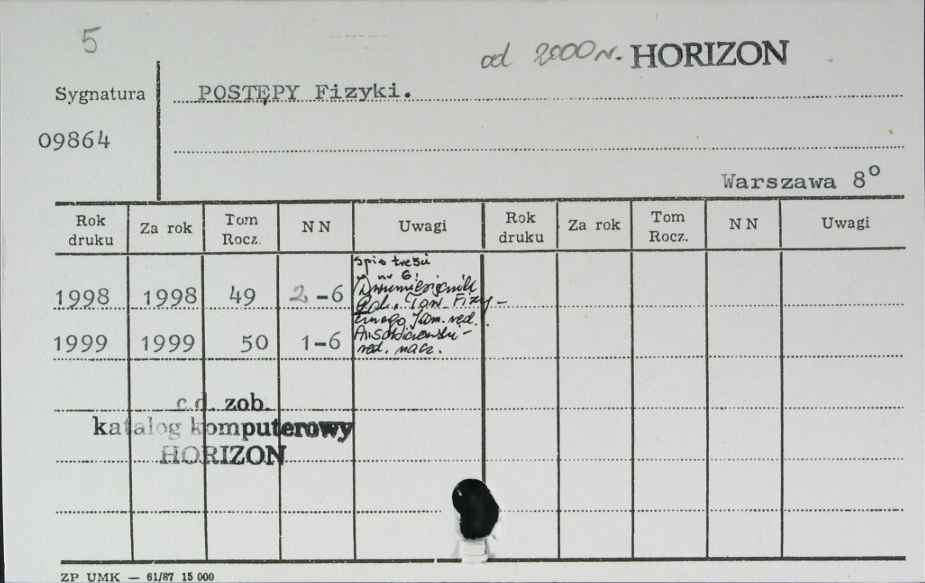 5
od 2000 r. HORIZON
Sygnatura
POSTĘPY Fizyki.
09864
Warszawa 8°
Rok druku Za rok Tom Rocz. NN Uwagi Rok druku Za rok Tom Rocz. NN Uwagi
spis treści
w nr 6.
1998 1998 49 2-6 Dwumiesięcznik
Pol. Tow. Fizy-
cznego
1999 1999 50 1-6
red. nacz.
c.d. zob.
katalog komputerowy
HORIZON
ZP UMK — 61/87 15 000